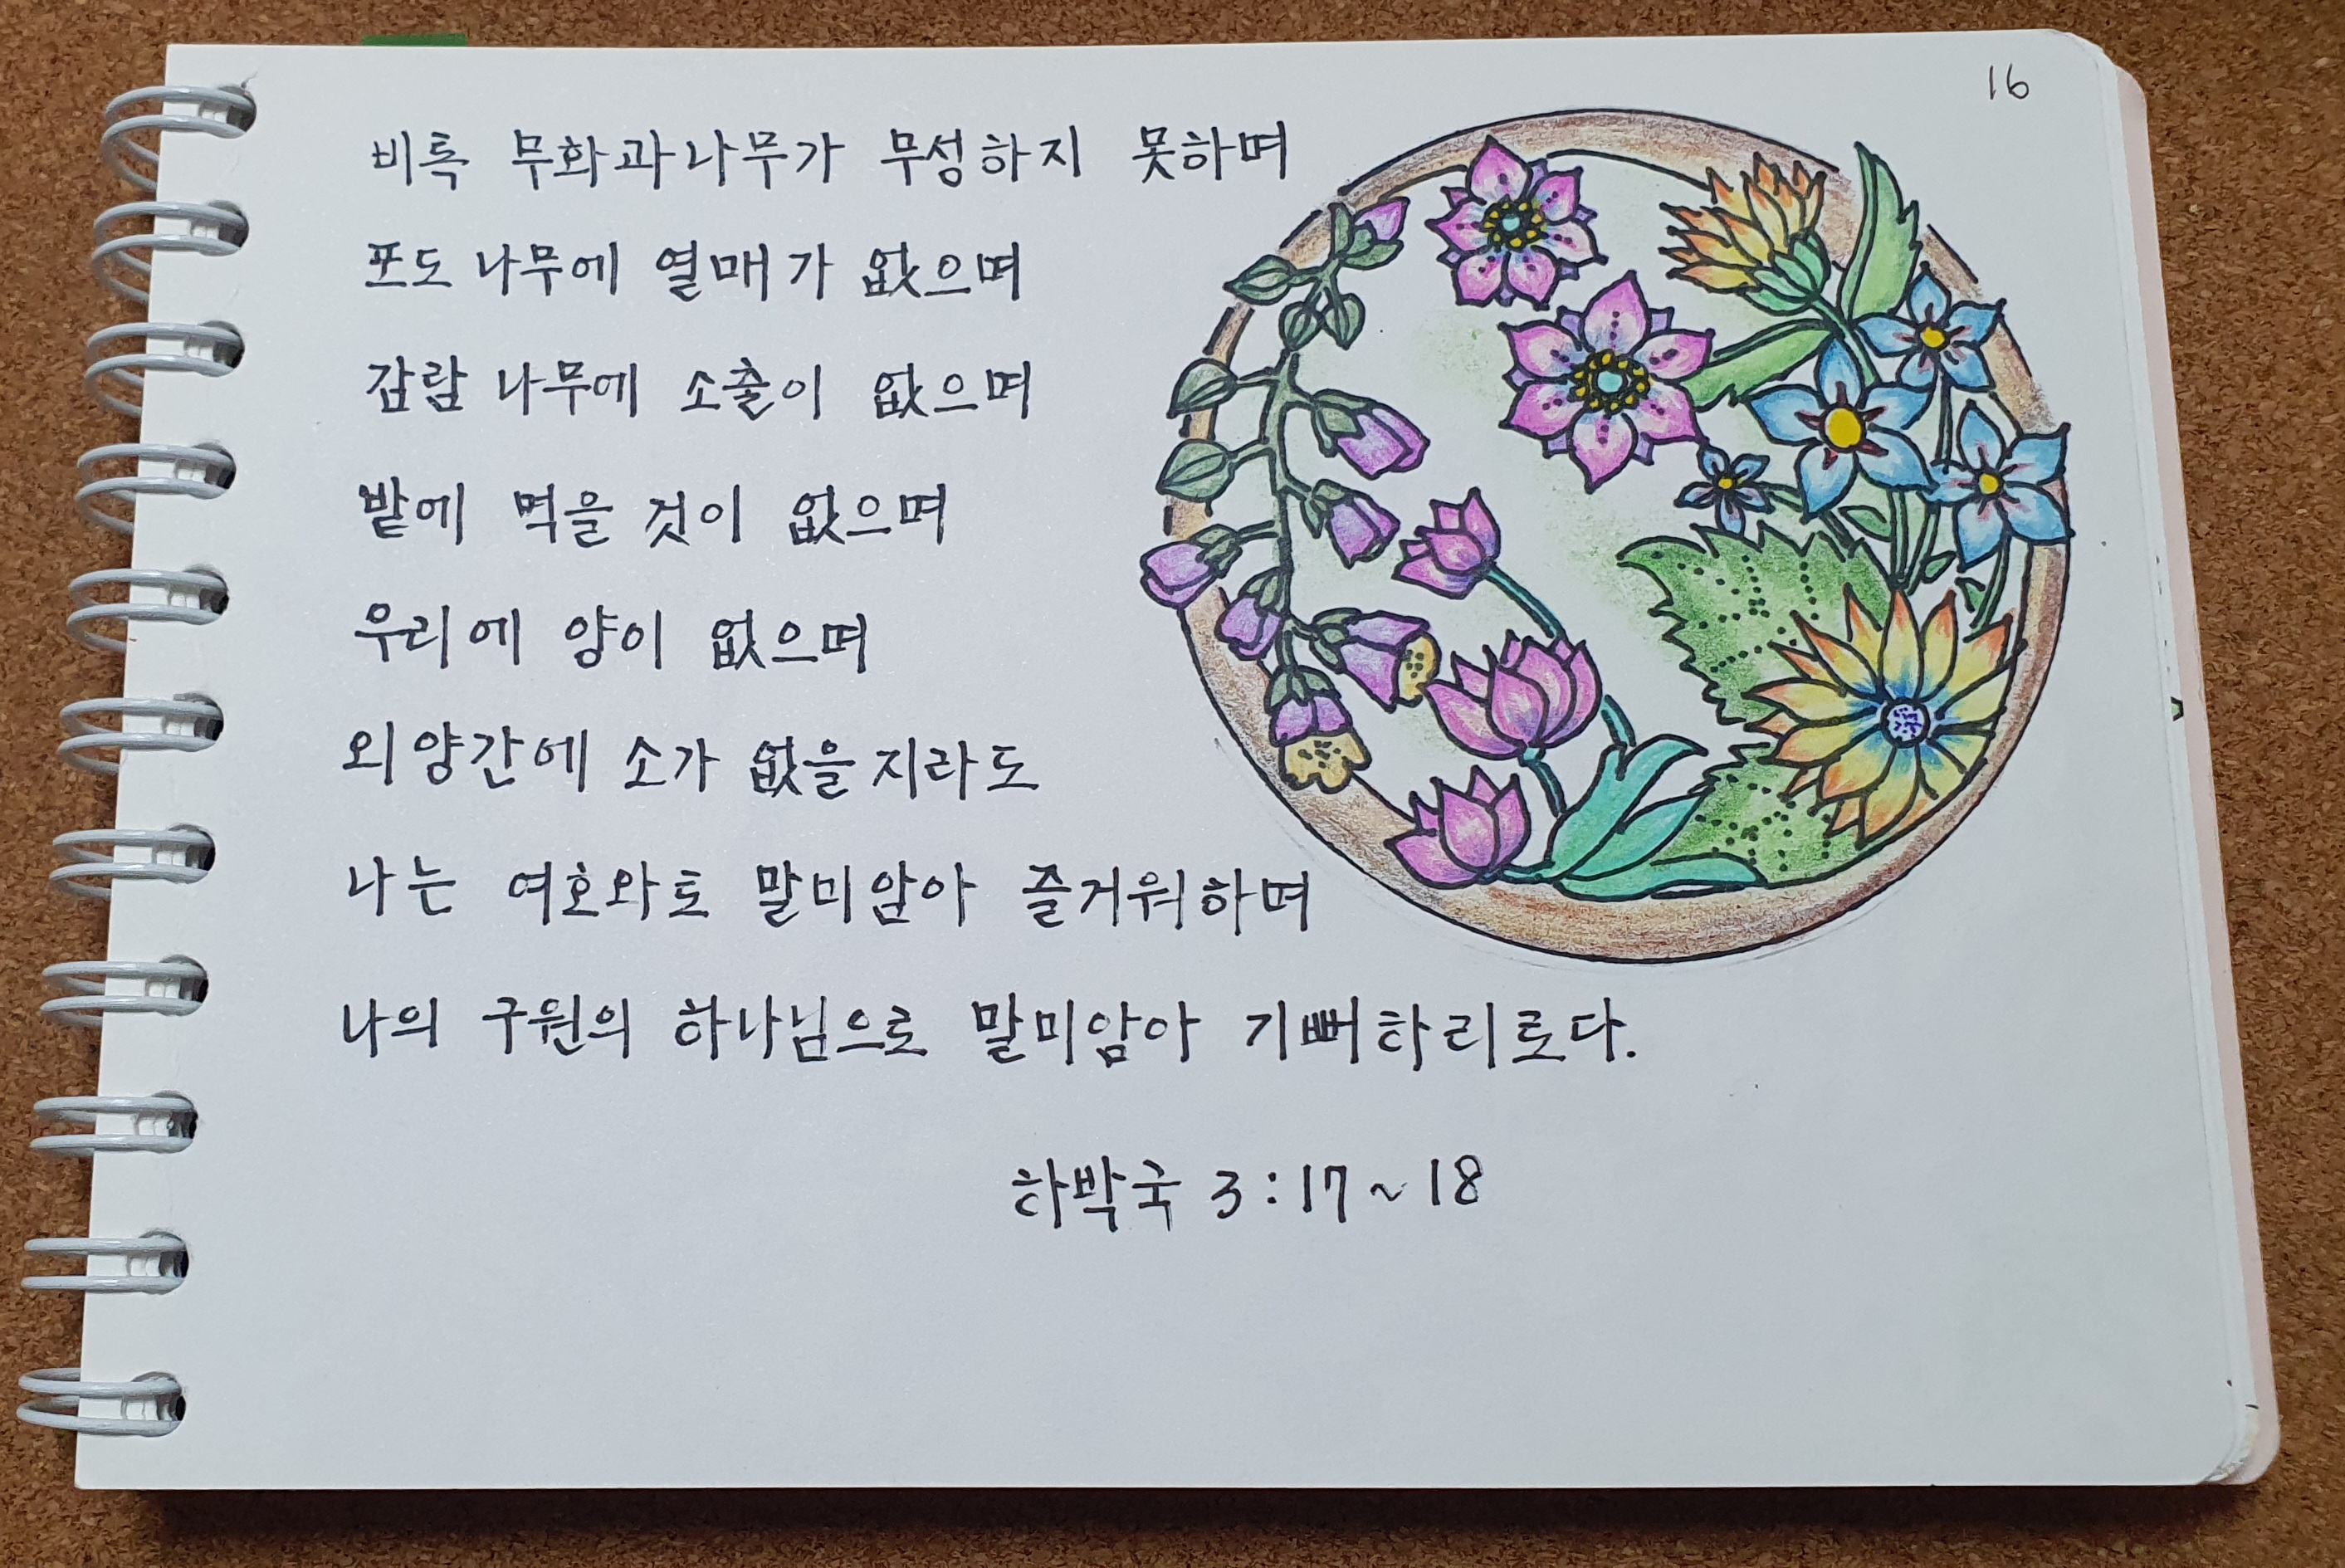 16
비록 무화과나무가 무성하지 못하며
포도 나무에 열매가 없으며
감람 나무에 소출이 없으며
밭에 먹을 것이 없으며
우리에 양이 없으며
외양간에 소가 없을지라도
나는 여호와로 말미암아 즐거워하며
나의 구원의 하나님으로 말미암아 기뻐하리로다.
하박국 3:17~18